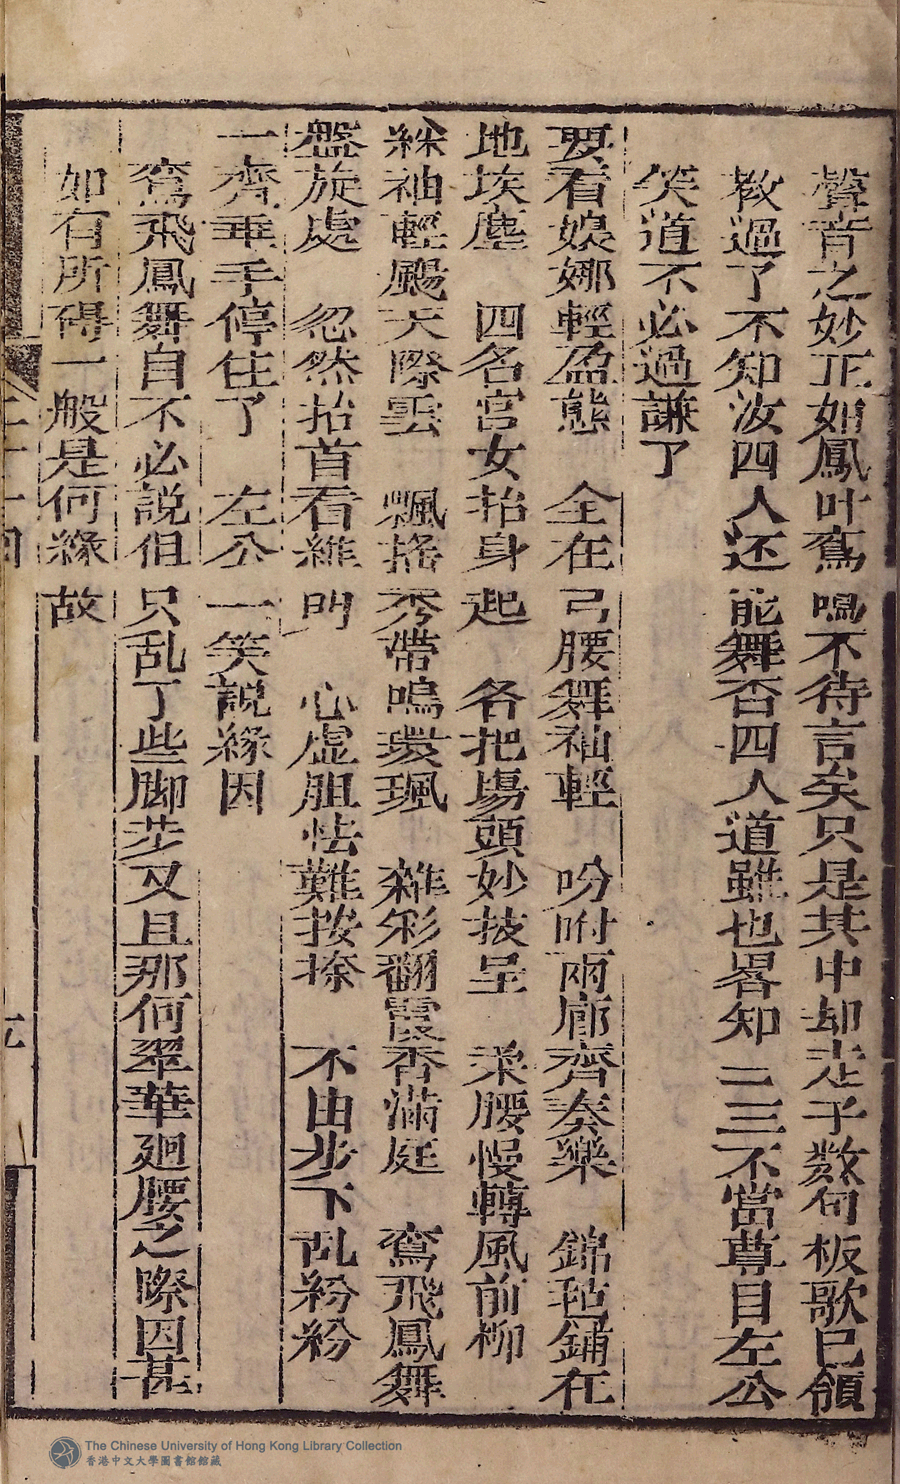 聲音之妙正如鳳叶鸞鳴不待言矣只是其中却走子数句板歌已領
教過了不知汝四人还能舞否四人道雖也畧知一二三不當尊目左公
笑道不必過謙了
要看娘娜輕盈態 全在弓腰舞袖輕 吩咐兩廊齊奏樂 錦毡鋪在
地埃塵 四名宫女抬身起 各把塲頭妙技呈 柔腰慢轉風前柳
綵袖輕颺天際雲 飄搖秀帶鳴環珮 雜彩翻霞香滿庭 鸞飛鳳舞
盤旋處 忽然抬首看維明 心虚胆怯難按捺 不由步下乱紛紛
一齊垂手停住了 左公一笑説緣因
鸞飛鳳舞自不必説但只乱了些脚步又且那何翠華廻腰之際因甚
如有所碍一般是何緣故
二十四
The Chinese University of Hong Kong Library Collection
香港中文大學圖書館館藏